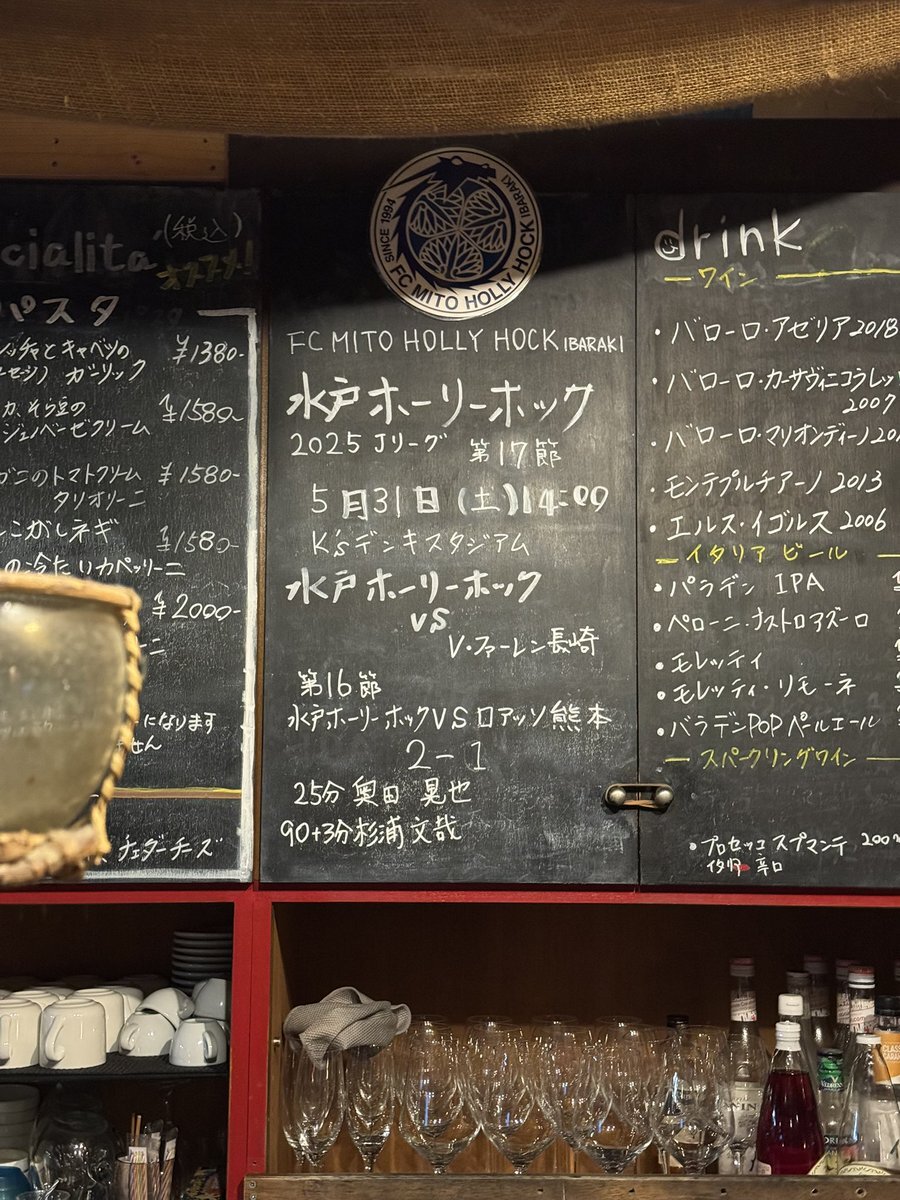 cialita
(税込)
オススメ!
パスタ
ッチャとキャベツの
ガーリック ¥1380-
カ、そら豆の
ジェノベーゼクリーム ¥1580-
ガニのトマトクリーム ¥1580-
タリオリーニ
こがしネギ ¥1580-
の冷たいカペッリーニ
¥2000-
ニ
になります
せん
チェダーチーズ
SINCE 1994
FC MITO HOLLY HOCK
IBARAKI
FC MITO HOLLY HOCK IBARAKI
水戸ホーリーホック
2025 Jリーグ 第17節
5月31日(土)14:00
Ksデンキスタジアム
水戸ホーリーホック
VS
V・ファーレン長崎
第16節
水戸ホーリーホックVSロアッソ熊本
2-1
25分 奥田 晃也
90+3分 杉浦 文哉
drink
ワイン
・バローロ・アゼリア2018
・バローロ・カーサヴィニコラレッ
2007
・バローロ・マリオンディーノ20
・モンテプルチアーノ 2013
・エルス・イゴルス 2006
イタリア ビール
・パラデン IPA
・ペローニ・ナストロアズーロ
・モレッティ
・モレッティ・リモーネ
・バラデンPOPペールエール
スパークリングワイン
・プロセッコ スプマンテ 200
イタリア 辛口